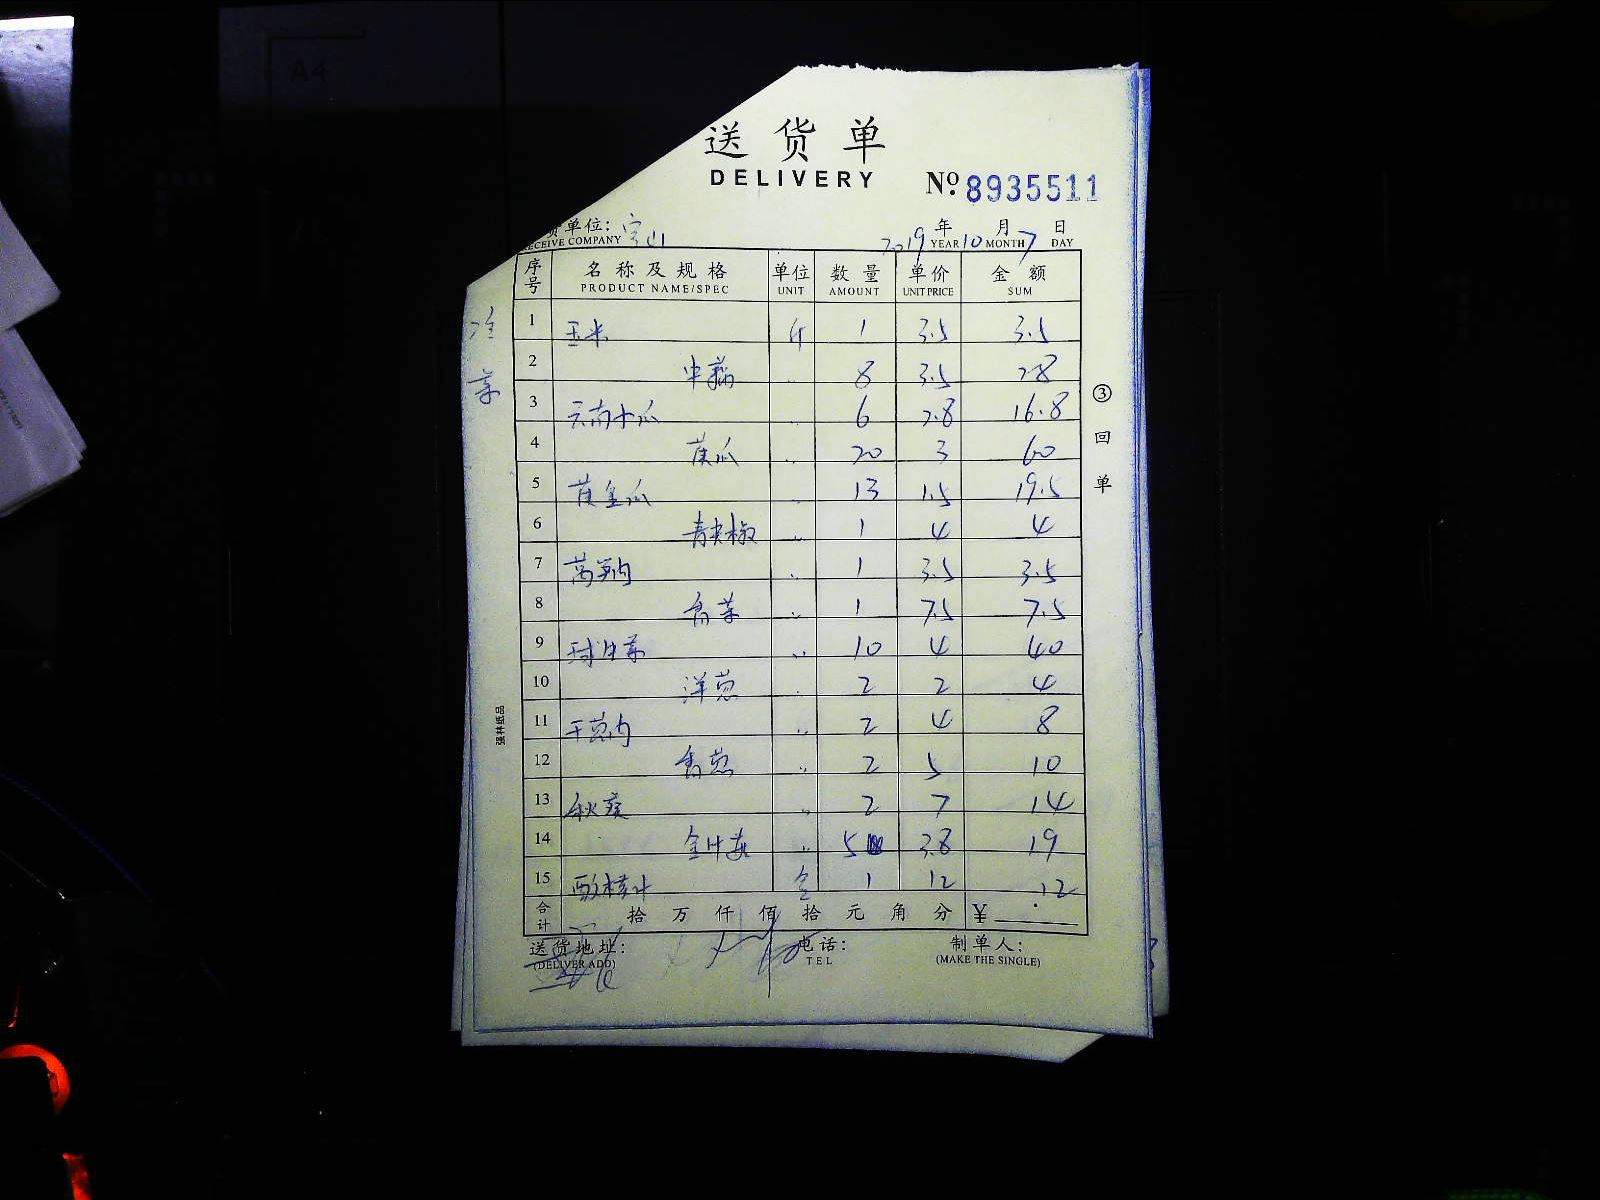 A4
送货单
DELIVERY
№ 8935511
货单位：宝山
RECEIVE COMPANY
2019 年 10 月 7 日
YEAR MONTH DAY
序号 名称及规格 单位 数量 单价 金额
PRODUCT NAME/SPEC UNIT AMOUNT UNIT PRICE SUM
冷菜
1 玉米 斤 1 3.5 3.5
2 中藕 〃 8 3.5 28
3 云南小瓜 〃 6 2.8 16.8
4 黄瓜 〃 20 3 60
5 黄金瓜 〃 13 1.5 19.5
6 青尖椒 〃 1 4 4
7 莴笋肉 〃 1 3.5 3.5
8 香菜 〃 1 7.5 7.5
9 球生菜 〃 10 4 40
10 洋葱 〃 2 2 4
11 干葱肉 〃 2 4 8
12 香葱 〃 2 5 10
13 秋葵 〃 2 7 14
14 金针菇 〃 5 3.8 19
15 1 12 12
合计 拾 万 仟 佰 拾 元 角 分 ¥
③ 回单
强林纸品
送货地址： 电话： 制单人：
(DELIVER ADD) TEL (MAKE THE SINGLE)